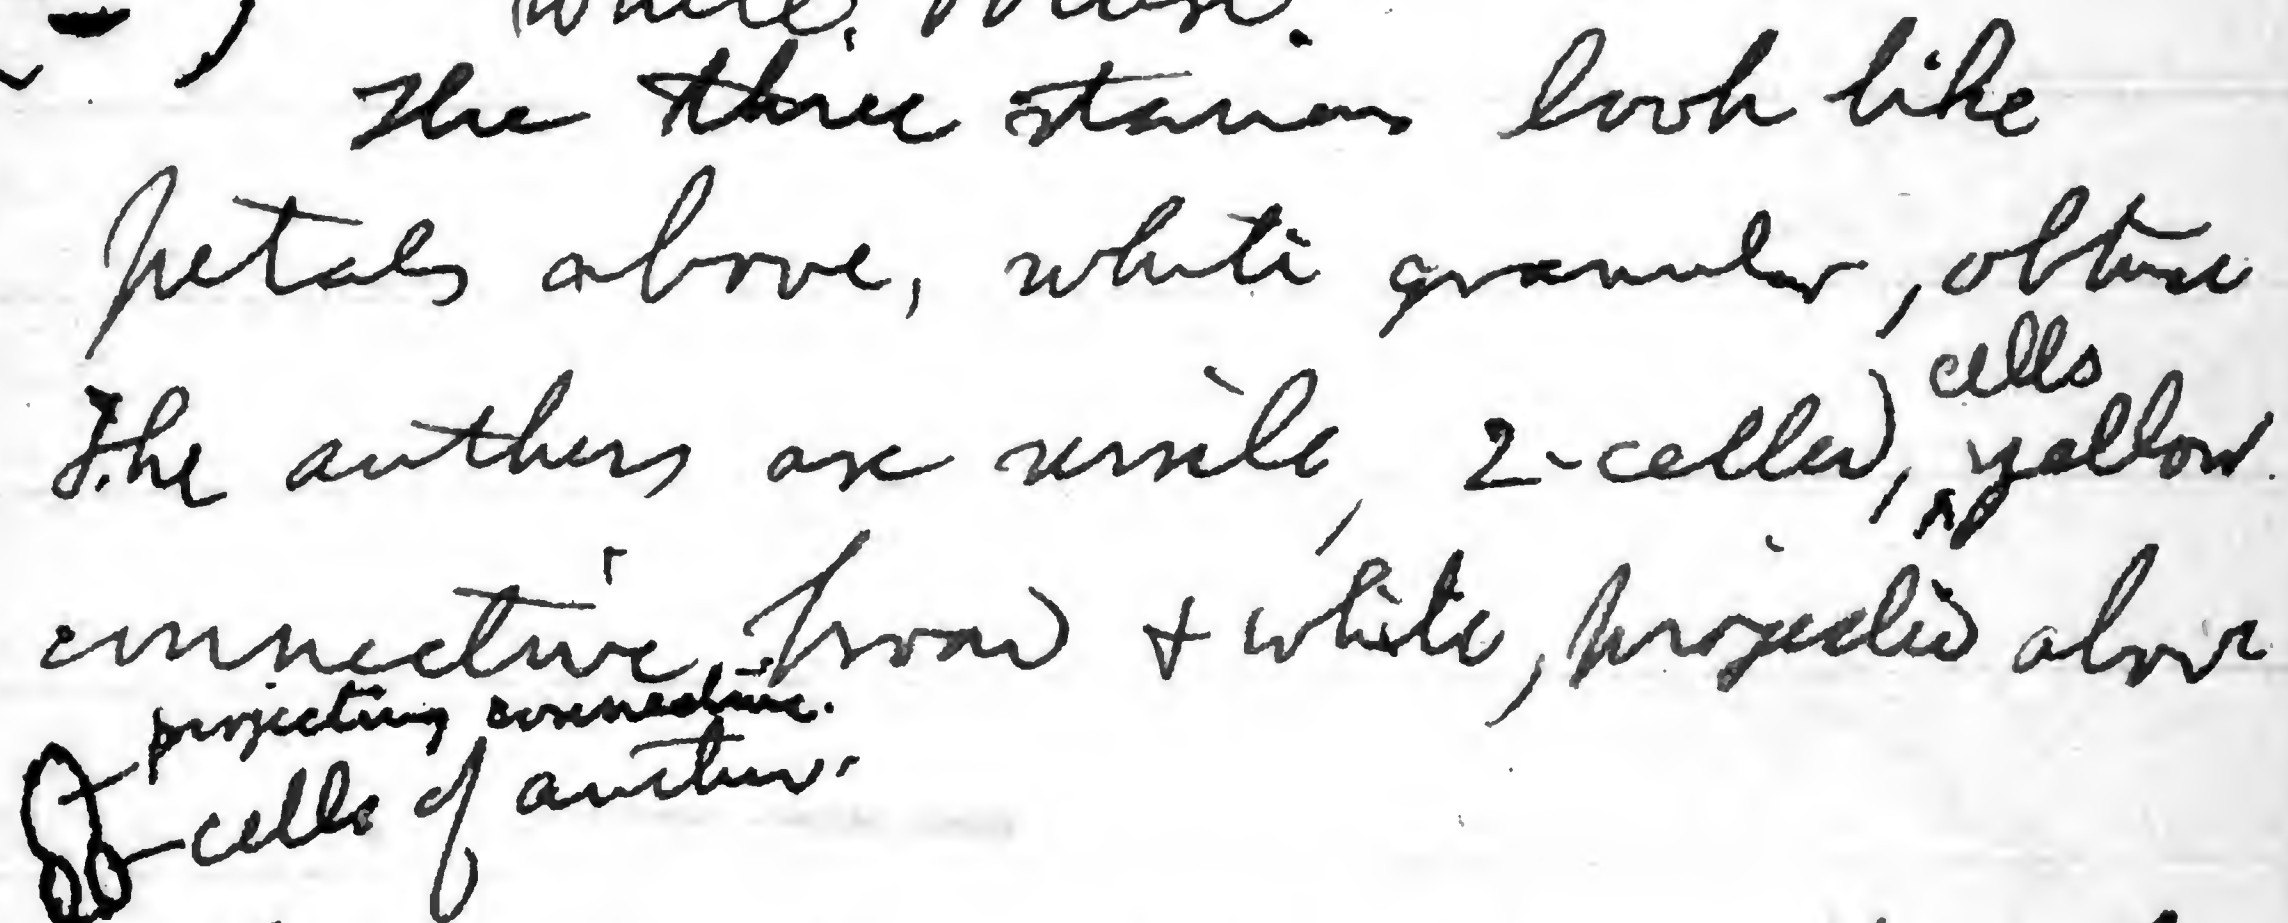 white,
The three stamens look like
petals above, white granular, obtuse
The anthers are sessile, 2-celled, cells yellow
connective broad & white, projected above
projecting connective.
cells of anther.